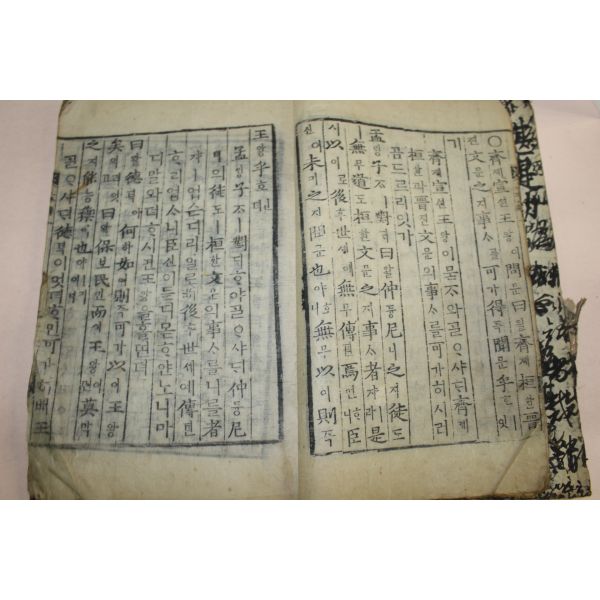 ○齊졔宣션王왕이問문曰왈齊졔桓환晉
진文문之지事ᄉᆞᄅᆞᆯ可가得득聞문乎호잇
가
齊졔宣션王왕이묻ᄌᆞ와ᄀᆞᆯᄋᆞ샤ᄃᆡ齊졔
桓환과晉진文문의事ᄉᆞᄅᆞᆯ可가히시러
곰드르리잇가
孟ᄆᆡᆼ子ᄌᆞㅣ對ᄃᆡ曰왈仲듕尼니之지徒도
ㅣ無무道도桓환文문之지事ᄉᆞ者쟈ㅣ라是
시以이로後후世셰예無무傳뎐焉언ᄒᆞ니臣
신이未미之지聞문也야호니無무以이則즉
王왕乎호ᅟᅵᆫ뎌
孟ᄆᆡᆼ子ᄌᆞㅣ對ᄃᆡᄒᆞ야ᄀᆞᆯᄋᆞ샤ᄃᆡ仲듕尼니
의徒도ㅣ桓환文문의事ᄉᆞᄅᆞᆯ니ᄅᆞᆯ者
쟈ㅣ업슨디라일로ᄡᅥ後후世셰예傳뎐
ᄒᆞ리업스니臣신이듣디몯ᄒᆞ얀노니마
디말와뎌ᄒᆞ시면王왕홀띤뎌
曰왈德덕이何하如여ᄒᆞ면則즉可가以이王왕
矣의리잇고曰왈保보民민而이王왕이면莫막
之지能능禦어也야ㅣ리이다
ᄀᆞᆯᄋᆞ샤ᄃᆡ德덕이엇더ᄒᆞ면可가히ᄡᅥ王